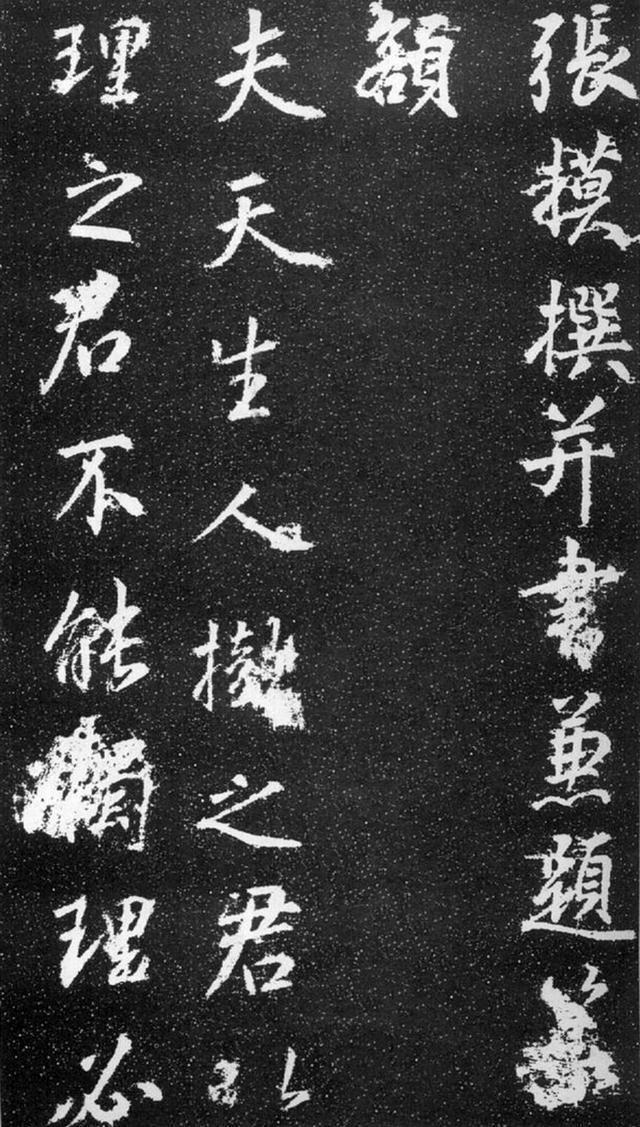 張摸撰并書兼題篆
額
夫天生人之君以
理之君不能獨理必